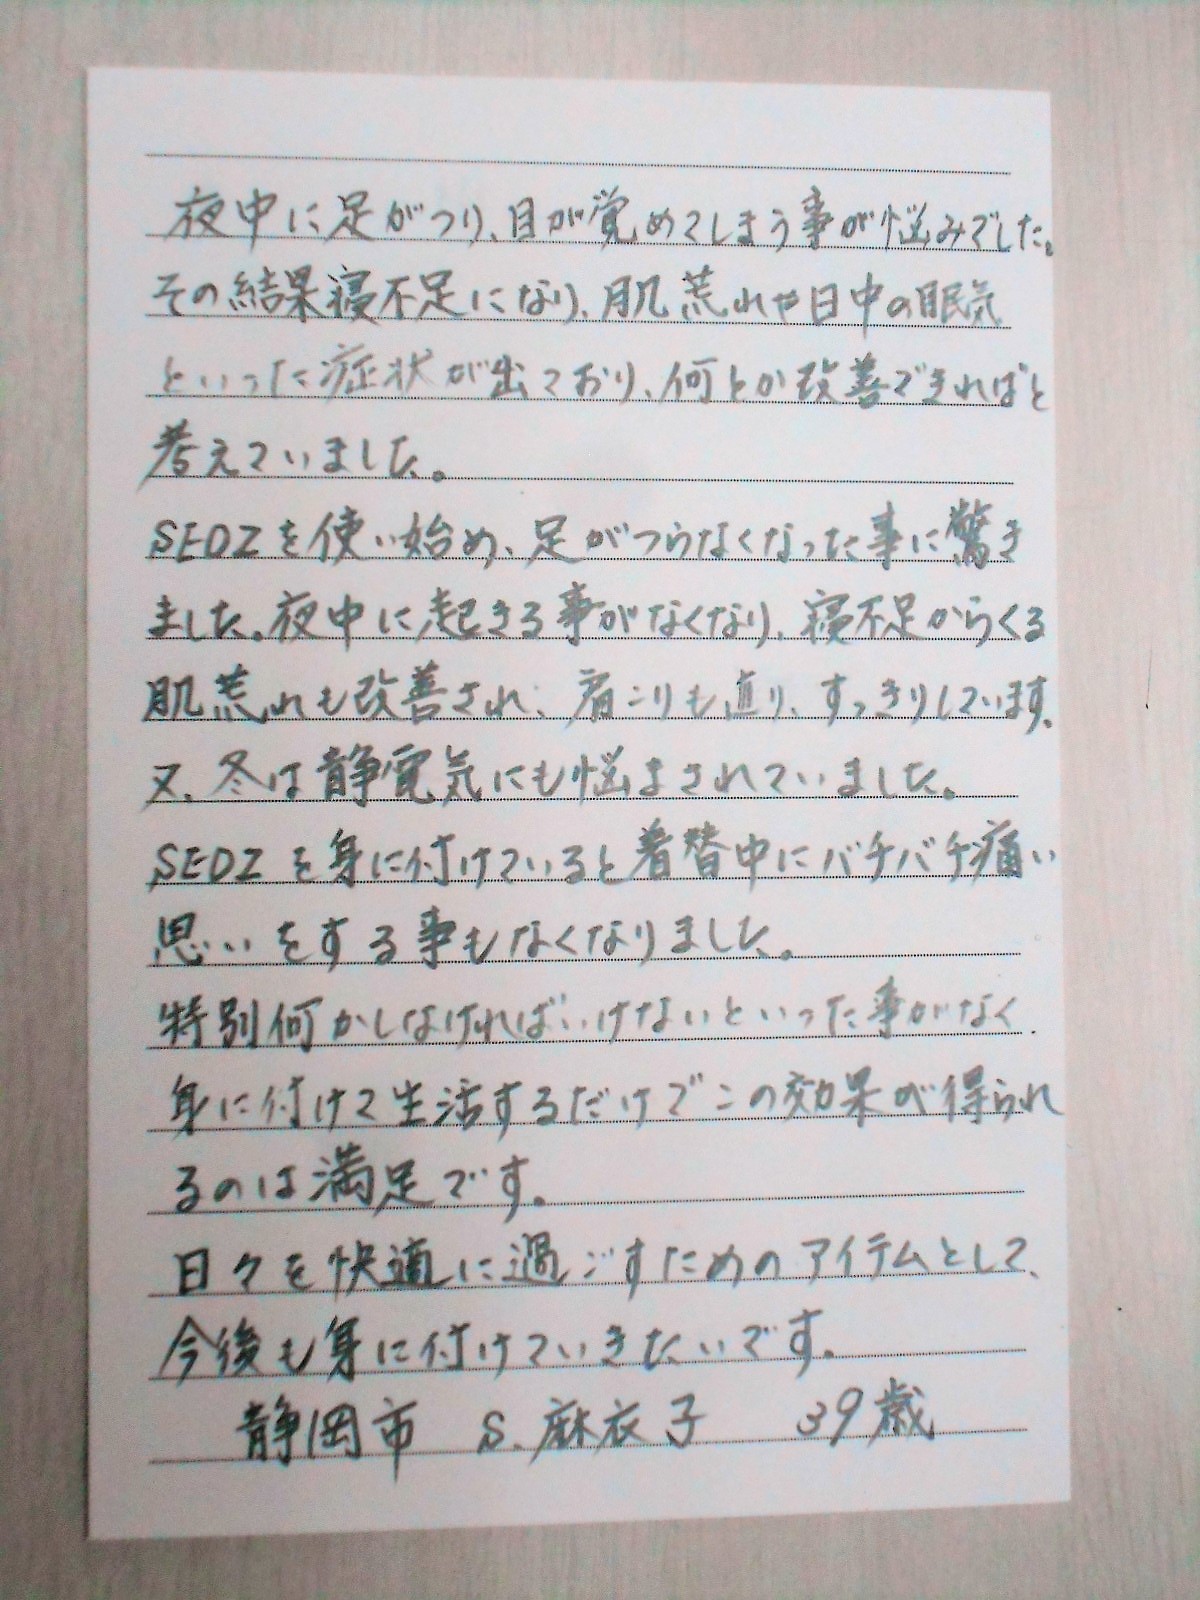 夜中に足がつり、目が覚めてしまう事が悩みでした。
その結果寝不足になり、肌荒れや日中の眠気
といった症状が出ており、何とか改善できればと
考えていました。
SEDZを使い始め、足がつらなくなった事に驚き
ました。夜中に起きる事がなくなり、寝不足からくる
肌荒れも改善され、肩こりも直り、すっきりしています。
又、冬は静電気にも悩まされていました。
SEDZを身に付けていると着替中にバチバチ痛い
思いをする事もなくなりました。
特別何かしなければいけないといった事がなく、
身に付けて生活するだけでこの効果が得られ
るのは満足です。
日々を快適に過ごすためのアイテムとして、
今後も身に付けていきたいです。
静岡市 S.麻衣子 39歳